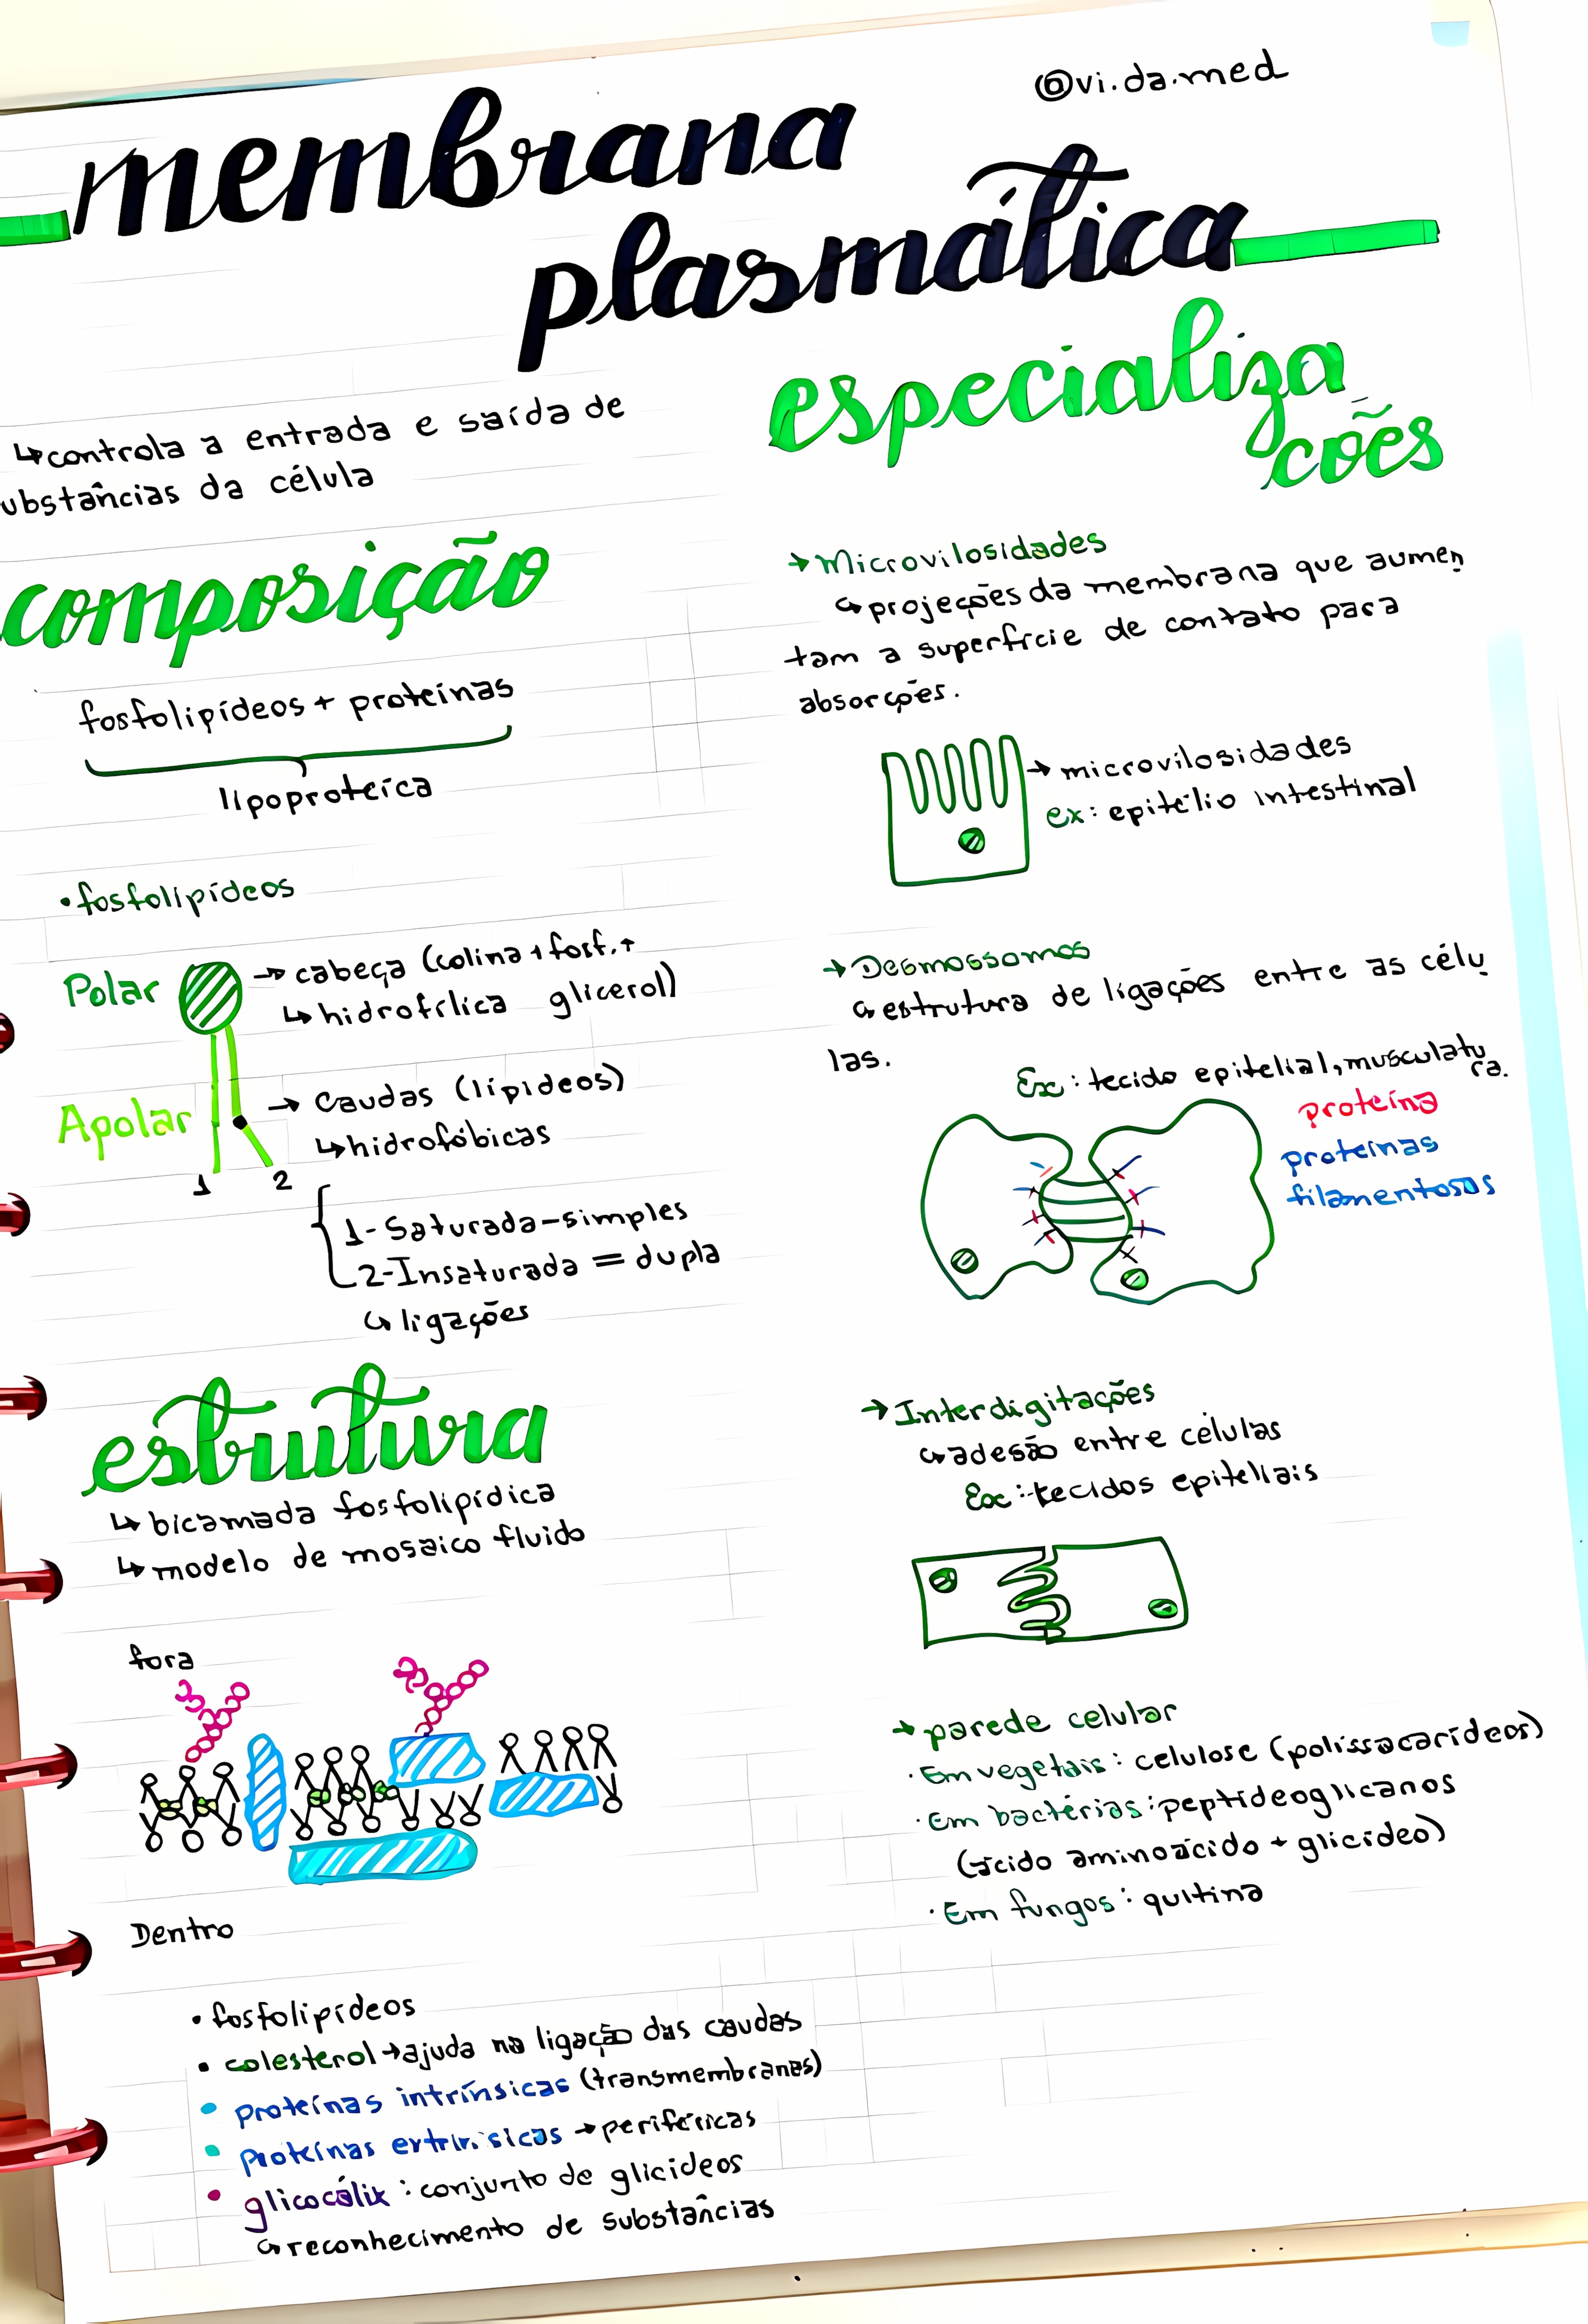 @vi.da.med
membrana
plasmática
↳controla a entrada e saída de
ubstâncias da célula
composição
fosfolipídeos + proteínas
lipoproteíca
•fosfolipídeos
Polar
→ cabeça (colina + fosf. +
↳ hidrofílica glicerol)
Apolar
→ Caudas (lipídeos)
↳hidrofóbicas
1 2
1-Saturada-simples
2-Insaturada = dupla
↳ ligações
estrutura
↳ bicamada fosfolipídica
↳ modelo de mosaico fluido
fora
Dentro
• fosfolipídeos
• colesterol→ajuda na ligação das caudas
• proteínas intrínsicas (transmembranas)
• proteínas extrínsicas → periféricas
• glicocálix : conjunto de glicídeos
↳reconhecimento de substâncias
especializa
ções
→ Microvilosidades
↳ projeções da membrana que aumen
tam a superfície de contato para
absorções.
→ microvilosidades
ex: epitélio intestinal
→ Desmossomos
↳ estrutura de ligações entre as célu
las.
Ex: tecido epitelial, musculatu
ra.
proteína
proteínas
filamentosas
→ Interdigitações
↳adesão entre células
Ex: tecidos epiteliais
→ parede celular
· Em vegetais: celulose (polissacarídeos)
· Em bactérias: peptideoglicanos
(ácido aminoácido + glicídeo)
· Em fungos: quitina